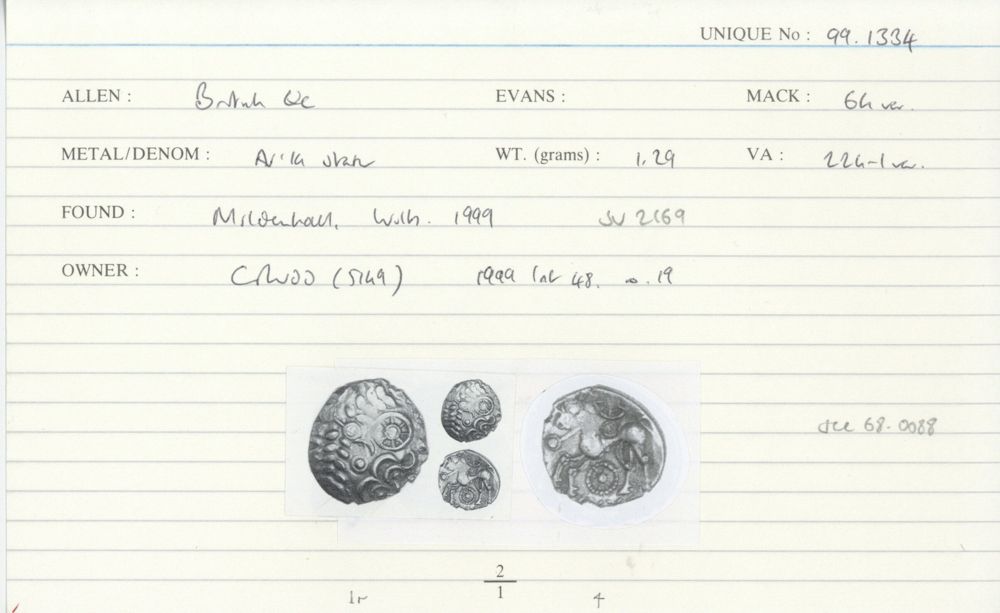 UNIQUE No : 99.1334
ALLEN : British Qc EVANS : MACK : 64 var.
METAL/DENOM : WT. (grams) : 1.29 VA : 224-1 var.
FOUND : Mildenhall, Wilts. 1999 SU 2169
OWNER : 1999 48. no. 19
see 68.0088
2
1
4